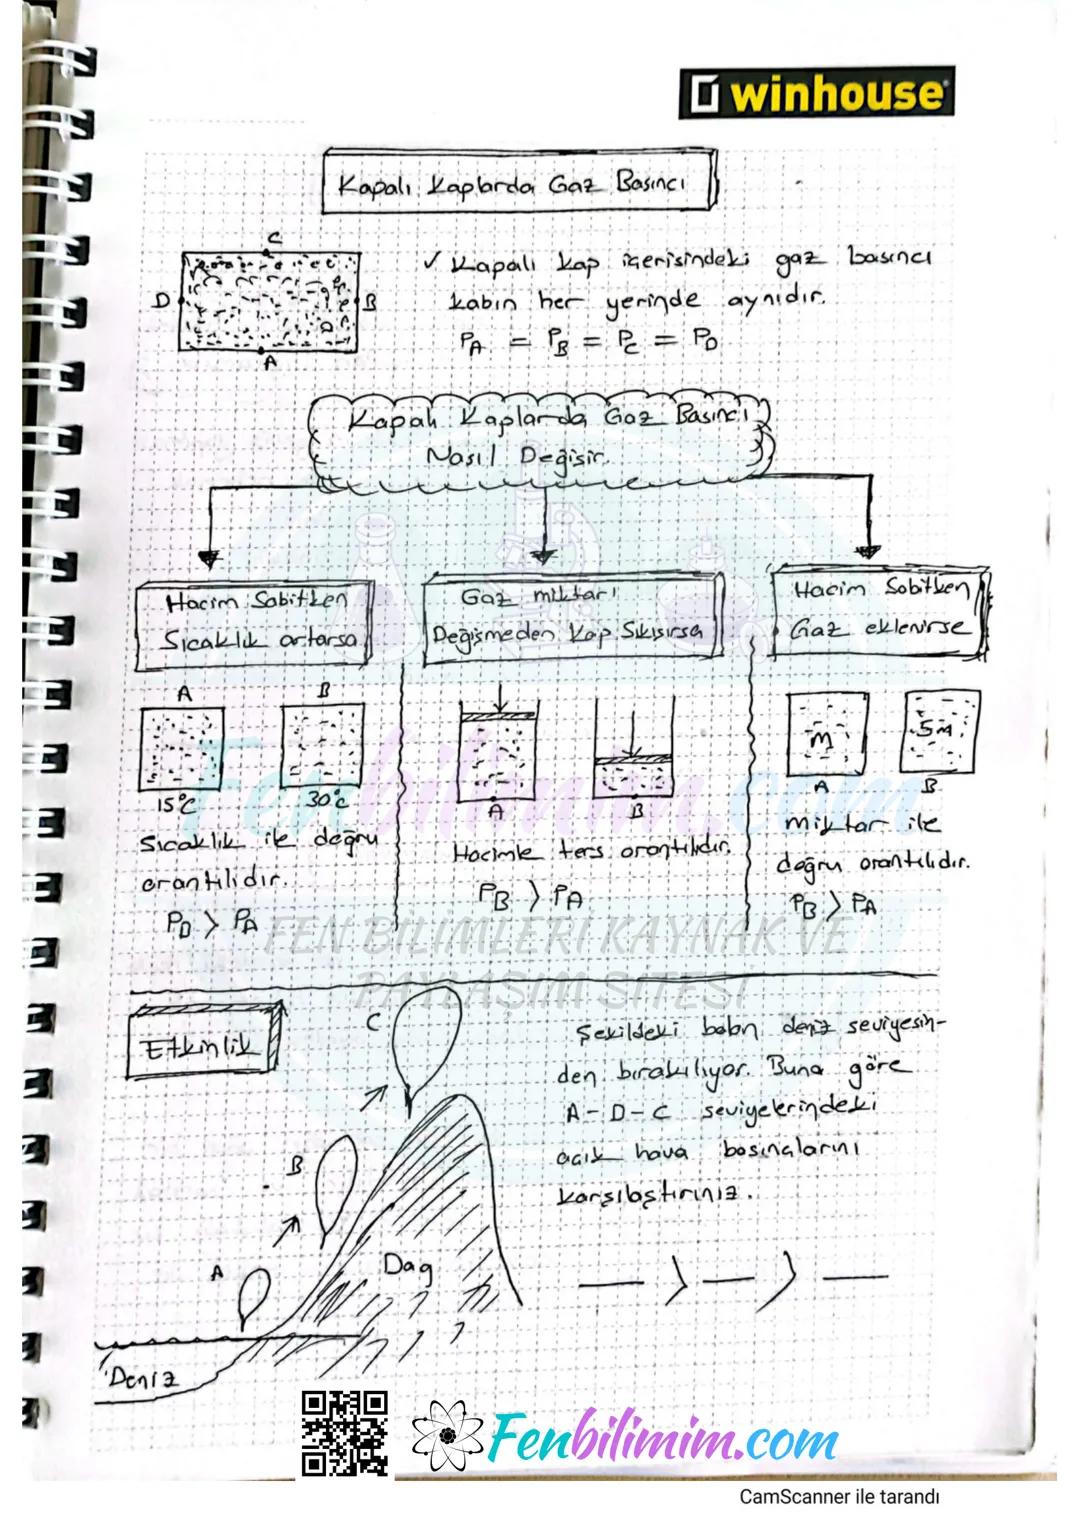 winhouse
Kapalı Kaplarda Gaz Basıncı
C
D
B
A
✓ Kapalı kap içerisindeki gaz basıncı
kabın her yerinde aynıdır.
PA = PB = PC = PD
Kapalı Kaplarda Gaz Basıncı
Nasıl Değişir.
Hacim Sabitken
Sıcaklık artarsa
A
B
15°C
30°C
Sıcaklık ile doğru
orantılıdır.
PD > PA
Gaz miktarı
Değişmeden Kap Sıkışırsa
A
B
Hacimle ters orantılıdır.
PB > PA
Hacim Sabitken
Gaz eklenirse
m
5m
A
B
miktar ile
doğru orantılıdır.
PB > PA
Fenbilimim.com
FEN BİLİMLERİ KAYNAK VE
PAYLAŞIM SİTESİ
Etkinlik
C
B
A
Dağ
Deniz
Şekildeki balon deniz seviyesin-
den bırakılıyor. Buna göre
A - D - C seviyelerindeki
açık hava basınçlarını
karşılaştırınız.
— > — > —
Fenbilimim.com
CamScanner ile tarandı